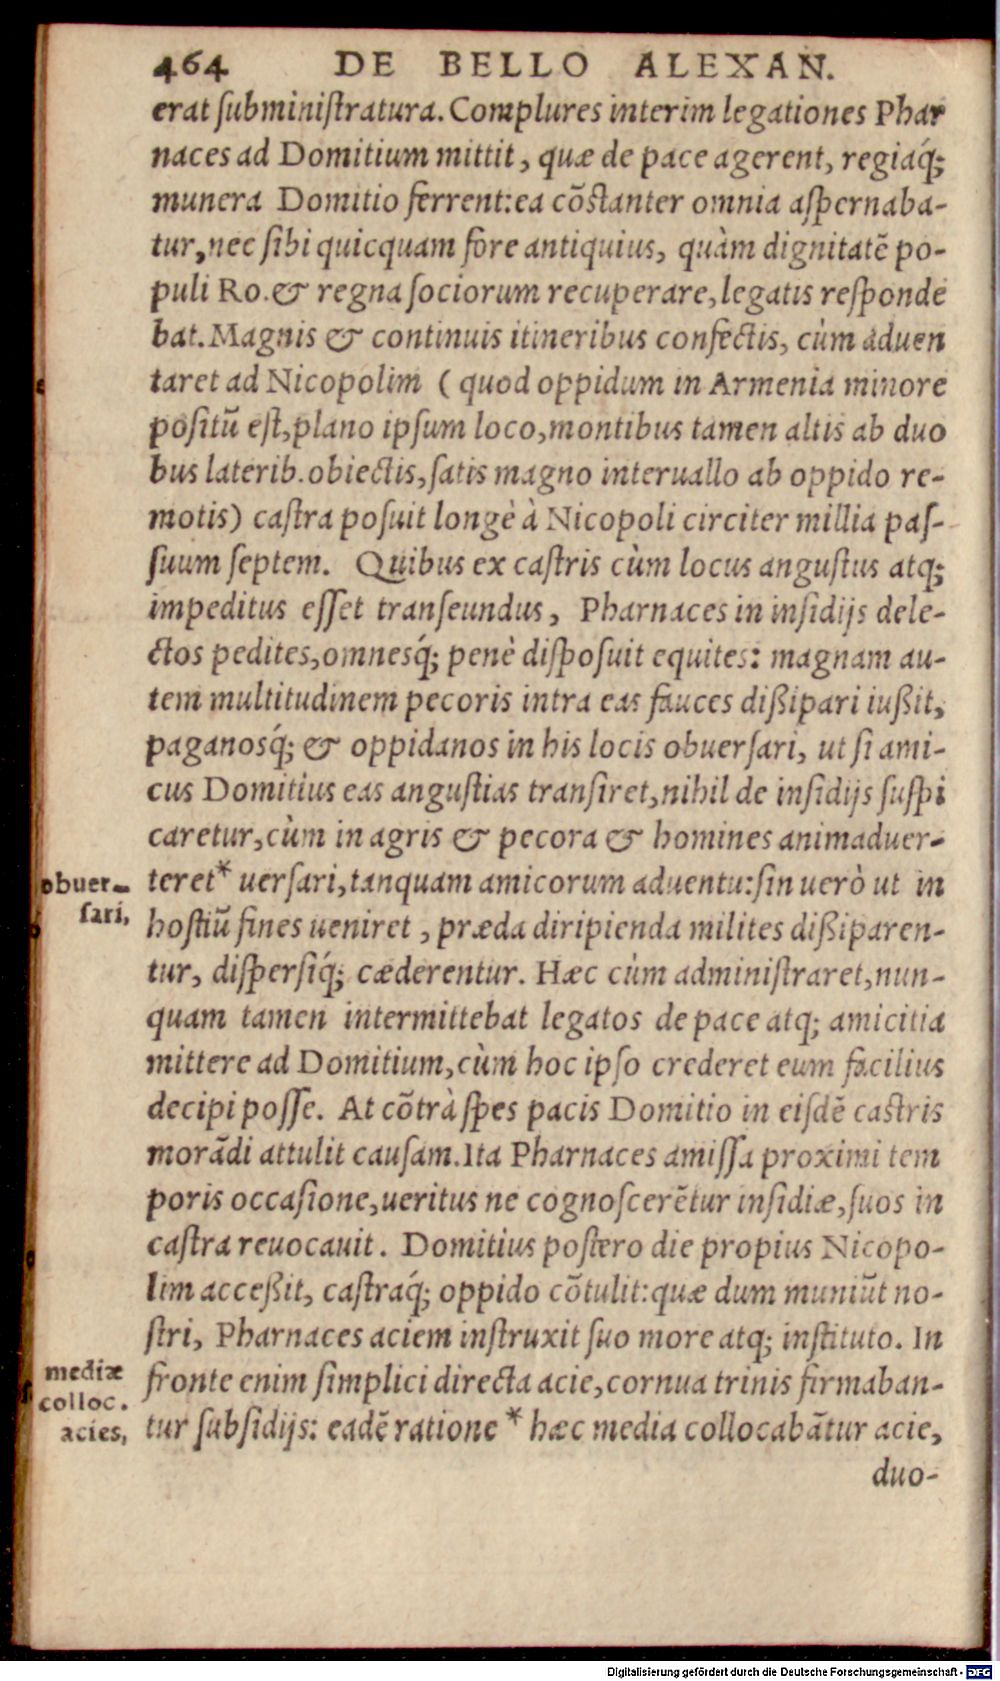 464 DE BELLO ALEXAN.
erat ſubminiſtratura. Complures interim legationes Phar
naces ad Domitium mittit, quæ de pace agerent, regiaq́;
munera Domitio ferrent: ea cõſtanter omnia aſpernaba-
tur, nec ſibi quicquam fore antiquius, quàm dignitatẽ po-
puli Ro. & regna ſociorum recuperare, legatis reſponde
bat. Magnis & continuis itineribus confectis, cùm aduen
taret ad Nicopolim (quod oppidum in Armenia minore
poſitũ eſt, plano ipſum loco, montibus tamen altis ab duo
bus laterib. obiectis, ſatis magno interuallo ab oppido re-
motis) caſtra poſuit longè à Nicopoli circiter millia paſ-
ſuum ſeptem. Quibus ex caſtris cùm locus anguſtus atq;
impeditus eſſet tranſeundus, Pharnaces in inſidijs dele-
ctos pedites, omnesq́; penè diſpoſuit equites: magnam au-
tem multitudinem pecoris intra eas fauces dißipari iußit,
paganosq́; & oppidanos in his locis obuerſari, ut ſi ami-
cus Domitius eas anguſtias tranſiret, nihil de inſidijs ſuſpi
caretur, cùm in agris & pecora & homines animaduer-
obuer- teret* uerſari, tanquam amicorum aduentu: ſin uerò ut in
ſari, hoſtiũ fines ueniret, præda diripienda milites dißiparen-
tur, diſperſiq́; cæderentur. Hæc cùm adminiſtraret, nun-
quam tamen intermittebat legatos de pace atq; amicitia
mittere ad Domitium, cùm hoc ipſo crederet eum facilius
decipi poſſe. At cõtrà ſpes pacis Domitio in eiſdẽ caſtris
morãdi attulit cauſam. Ita Pharnaces amiſſa proximi tem
poris occaſione, ueritus ne cognoſcerẽtur inſidiæ, ſuos in
caſtra reuocauit. Domitius poſtero die propius Nicopo-
lim acceßit, caſtraq́; oppido cõtulit: quæ dum muniũt no-
ſtri, Pharnaces aciem inſtruxit ſuo more atq; inſtituto. In
mediæ fronte enim ſimplici directa acie, cornua trinis firmaban-
colloc.
acies, tur ſubſidijs: eadẽ ratione * hæc media collocabãtur acie,
duo-
Digitalisierung gefördert durch die Deutsche Forschungsgemeinschaft - DFG